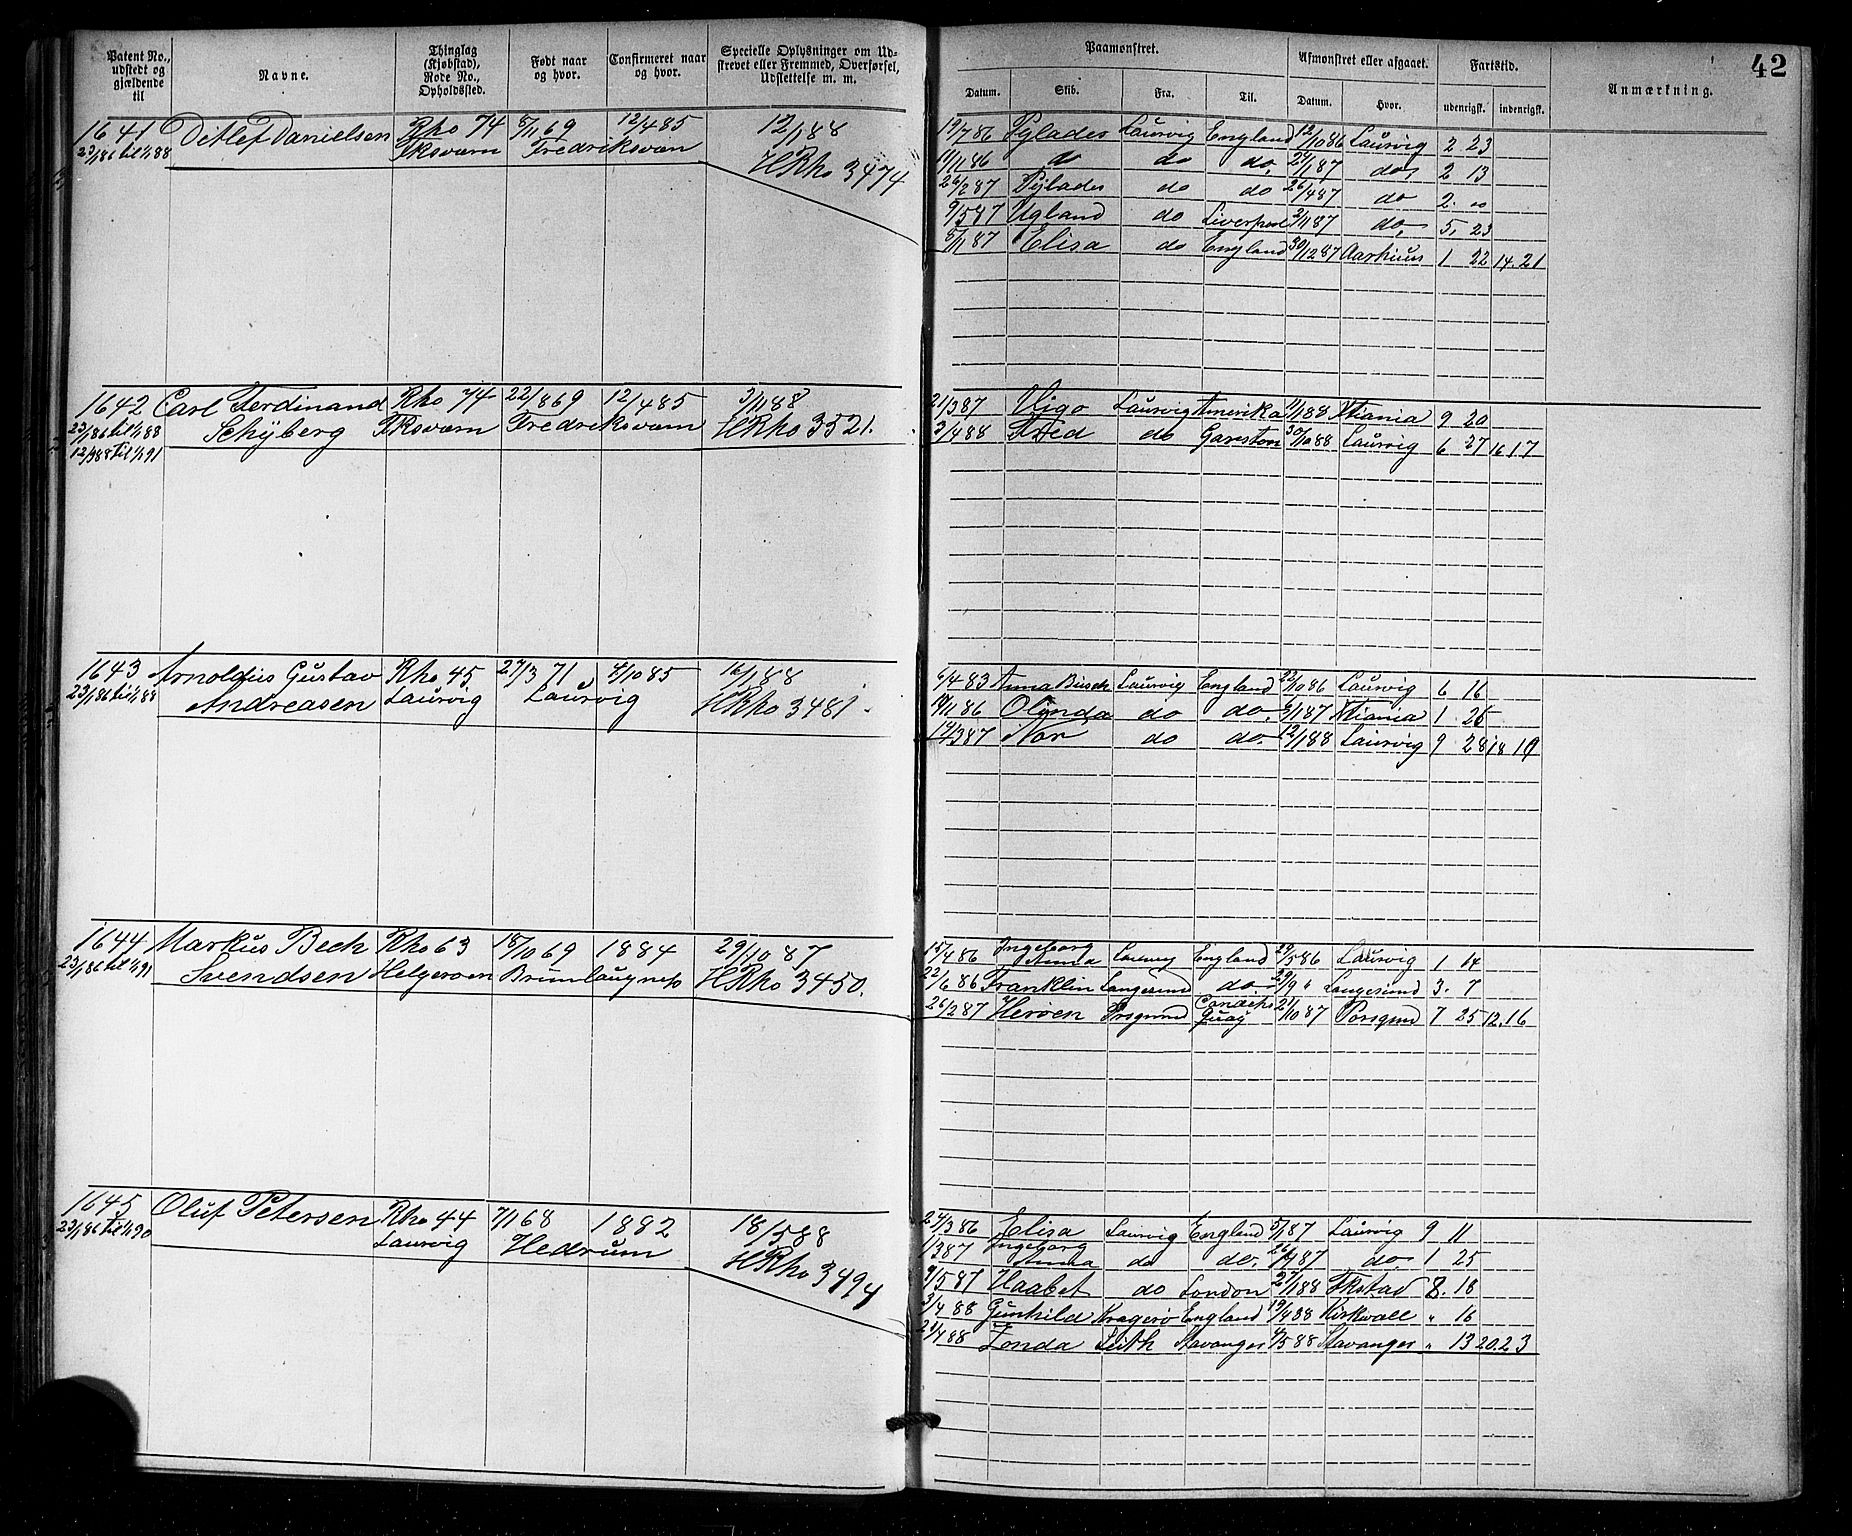 42
Patent No., udstedt og gjældende til
Navne.
Thinglag (Kjøbstad), Rode No., Opholdssted.
Født naar og hvor.
Confirmeret naar og hvor.
Specielle Oplysninger om Udstrevet eller Fremmed, Overførsel, Udslettelse m. m.
Paamønstret.
Afmønstret eller afgaaet.
Fartstid.
Anmærkning.
Datum. Skib. Fra. Til. Datum. Hvor. udenrigsk. indenrigsk.
1641 Detlef Danielsen Rho 74 8/11 69 12/4 85 12/1 88
23/1 86 til 1/1 88 Fksværn Fredriksværn HRho 3474
19/7 86 Pylades Laurvig England 12/10 86 Laurvig 2 23
11/11 86 do do do. 27/1 87 do, 2 13
26/2 87 Pylades do do 26/4 87 do 2. "
9/5 87 Ugland do Liverpool 2/11 87 do, 5, 23
5/11 87 Elisa do England 30/12 87 Aarhuus 1 22 14. 21
1642 Carl Ferdinand Rho 74 22/8 69 12/4 85 3/11 88
23/1 86 til 1/1 88 Schÿberg Fksværn Fredriksværn HRho 3521.
12/3 88 til 1/1 91
21/3 87 Vigo Laurvig Amerika 11/1 88 Xtiania 9 20
3/4 88 Sted do Garston 30/10 88 Laurvig 6 27 16 17
1643 Arnoldus Gustav Rho 45 27/3 71 4/10 85 16/1 88
23/1 86 til 1/1 88 Andreasen Laurvig Laurvig HRho 3481.
6/4 83 Anna Busch Laurvig England 22/10 86 Laurvig 6 16
11/11 86 Olonda do do. 6/1 87 Xtiania 1 25
14/3 87 Nor do do. 12/1 88 Laurvig 9 28 18 19
1644 Markus Bech Rho 63 18/10 69 1884 29/10 87
23/1 86 til 1/1 91 Svendsen Helgeroen Brunlaugnæs HRho 3450.
15/4 86 Ingeborg Anna Laurvig England 29/5 86 Laurvig 1 14
22/6 86 Franklin Langesund do. 29/9 " Langesund 3. 7
26/2 87 Herøen Prsgrund Quay 21/10 87 Porsgrund 7 25 12. 16
1645 Oluf Petersen Rho 44 7/11 68 1882 18/5 88
23/1 86 til 1/1 90 Laurvig Hedrum HRho 3494
24/3 86 Elisa Laurvig England 5/1 87 Laurvig 9 11
1/3 87 Ingeborg Anna do do. 26/4 87 do. 1 25
9/5 87 Haabet do London 27/1 88 Fkstad 8. 18
3/4 88 Gunhild Kragerø England 19/4 88 Kirkwall " 16
21/4 88 Zonda Leith Stavanger 4/5 88 Stavanger " 13 20. 23